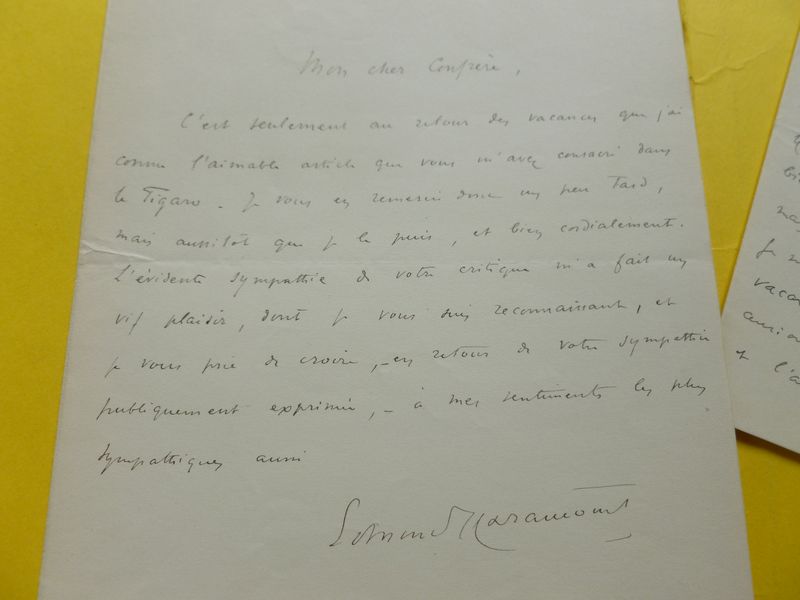 Mon cher Confrère,
C'est seulement au retour des vacances que j'ai
connu l'aimable article que vous m'avez consacré dans
le Figaro. Je vous en remercie donc un peu tard,
mais aussitôt que je le puis, et bien cordialement.
L'évidente sympathie de votre critique m'a fait un
vif plaisir, dont je vous suis reconnaissant, et
je vous prie de croire, – en retour de votre sympathie
publiquement exprimée, – à mes sentiments les plus
sympathiques aussi
Edmond Haraucourt
vaca
l'a